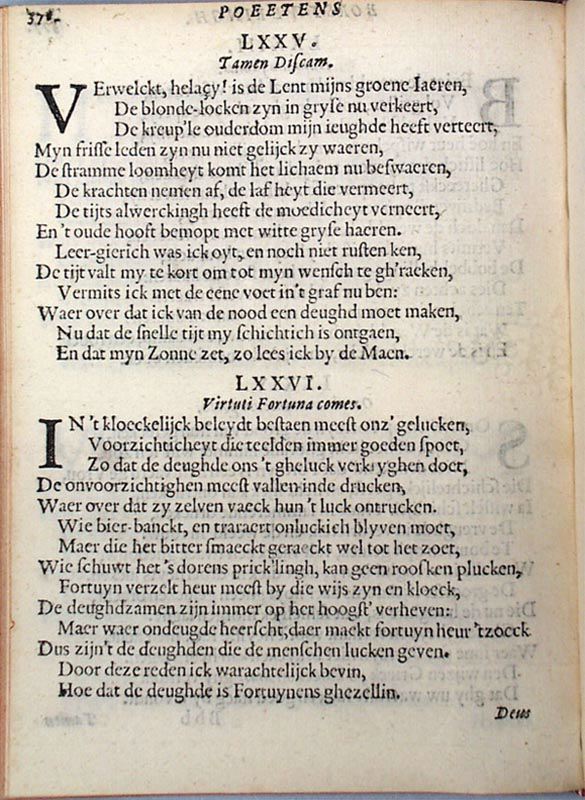 378. POEETENS
LXXV.
Tamen Diſcam.
VErwelckt, helaçy! is de Lent mijns groene Iaeren,
De blonde-locken zyn in gryſe nu verkeert,
De kreup'le ouderdom mijn ieughde heeft verteert,
Myn friſſe leden zyn nu niet gelijck zy waeren,
De ſtramme loomheyt komt het lichaem nu beſwaeren,
De krachten nemen af, de laf heyt die vermeert,
De tijts alwerckingh heeft de moedicheyt verneert,
En't oude hooft bemopt met witte gryſe haeren.
Leer-gierich was ick oyt, en noch niet ruſten ken,
De tijt valt my te kort om tot myn wenſch te gh'raeken,
Vermits ick met de eene voet in't graf nu ben:
Waer over dat ick van de nood een deughd moet maken,
Nu dat de ſnelle tijt my ſchichtich is ontgaen,
En dat myn Zonne zet, zo lees ick by de Maen.
LXXVI.
Virtuti Fortuna comes.
IN 't kloeckelijck beleydt beſtaen meeſt onz' gelucken,
Voorzichticheyt die teelden immer goeden ſpoet,
Zo dat de deughde ons 't gheluck verkryghen doet,
De onvoorzichtighen meeſt vallen inde drucken,
Waer over dat zy zelven vaeck hun 't luck ontrucken.
Wie bier-banckt, en traraert onluckich blyven moet,
Maer die het bitter ſmaeckt geraeckt wel tot het zoet,
Wie ſchuwt het 's dorens prick'lingh, kan geen rooſken plucken,
Fortuyn verzelt heur meeſt by die wijs zyn en kloeck,
De deughdzamen zijn immer op het hoogſt' verheven:
Maer waer ondeugde heerſcht, daer maekt fortuyn heur 'tzoeck
Dus zijn't de deughden die de menſchen lucken geven.
Door deze reden ick warachtelijck bevin,
Hoe dat de deughde is Fortuynens ghezellin.
Deus